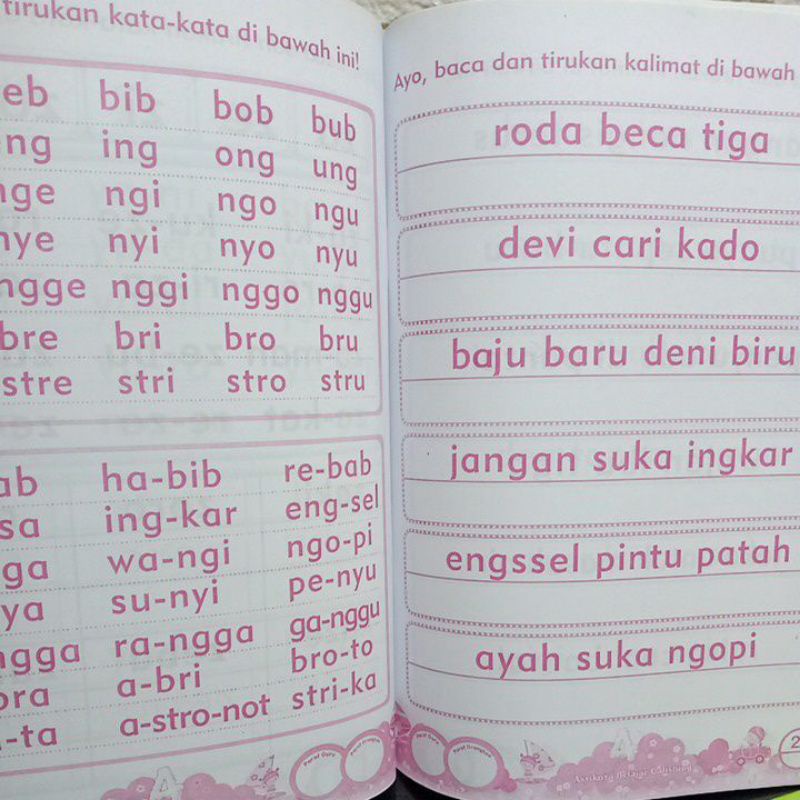 tirukan kata-kata di bawah ini!
eb bib bob bub
ng ing ong ung
nge ngi ngo ngu
nye nyi nyo nyu
ngge nggi nggo nggu
bre bri bro bru
stre stri stro stru
ab ha-bib re-bab
sa ing-kar eng-sel
ga wa-ngi ngo-pi
ya su-nyi pe-nyu
ngga ra-ngga ga-nggu
bra a-bri bro-to
-ta a-stro-not stri-ka
Paraf Guru
Paraf Orangtua
Ayo, baca dan tirukan kalimat di bawah
roda beca tiga
devi cari kado
baju baru deni biru
jangan suka ingkar
engssel pintu patah
ayah suka ngopi
Paraf Guru
Paraf Orangtua
2